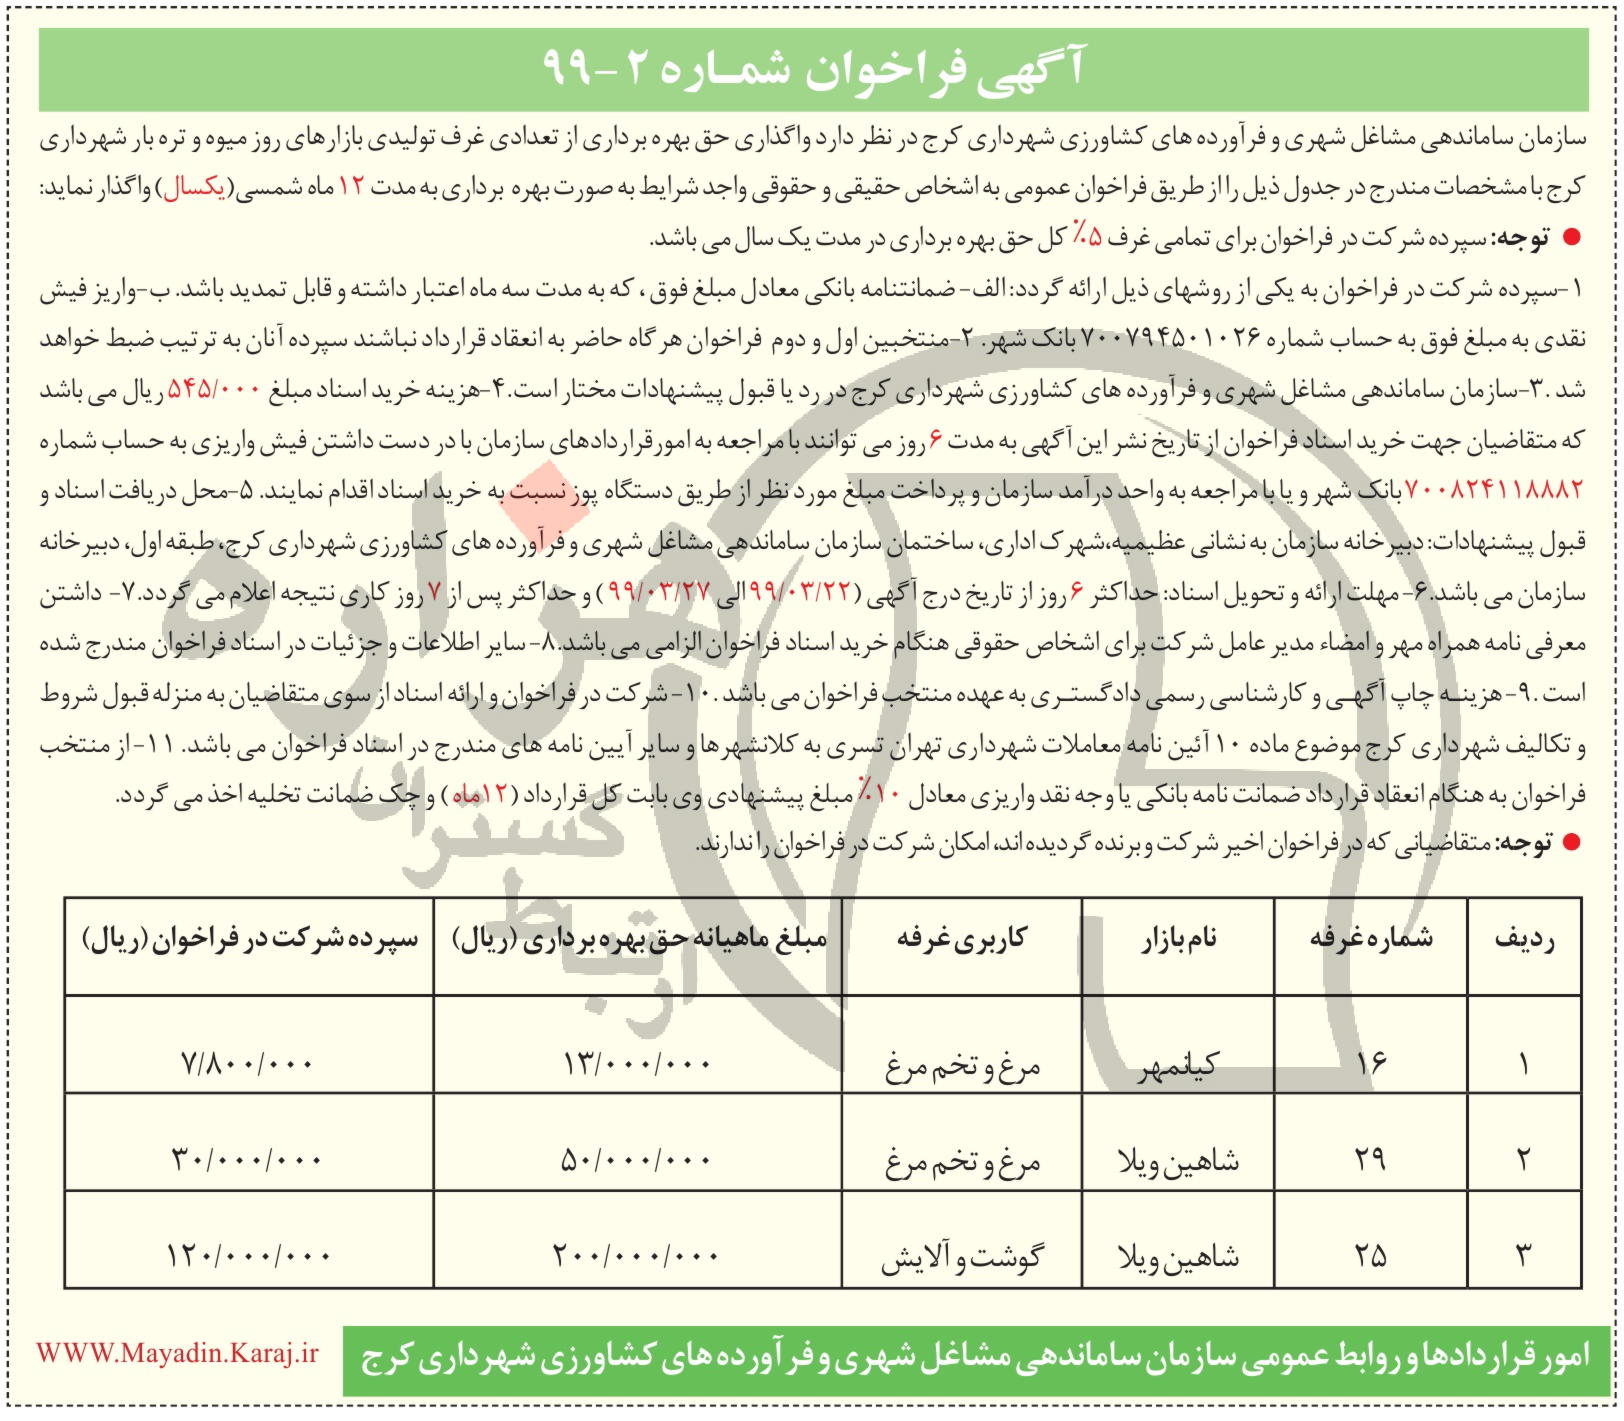 آگهی فراخوان شماره ۲-۹۹
سازمان ساماندهی مشاغل شهری و فرآورده های کشاورزی شهرداری کرج در نظر دارد واگذاری حق بهره برداری از تعدادی غرف تولیدی بازارهای روز میوه و تره بار شهرداری
کرج با مشخصات مندرج در جدول ذیل را از طریق فراخوان عمومی به اشخاص حقیقی و حقوقی واجد شرایط به صورت بهره برداری به مدت ۱۲ ماه شمسی (یکسال) واگذار نماید:
● توجه: سپرده شرکت در فراخوان برای تمامی غرف ۵٪ کل حق بهره برداری در مدت یک سال می باشد.
۱-سپرده شرکت در فراخوان به یکی از روشهای ذیل ارائه گردد: الف- ضمانتنامه بانکی معادل مبلغ فوق ، که به مدت سه ماه اعتبار داشته و قابل تمدید باشد. ب-واریز فیش
نقدی به مبلغ فوق به حساب شماره ۷۰۰۷۹۴۵۰۱۰۲۶ بانک شهر. ۲-منتخبین اول و دوم فراخوان هر گاه حاضر به انعقاد قرارداد نباشند سپرده آنان به ترتیب ضبط خواهد
شد .۳-سازمان ساماندهی مشاغل شهری و فرآورده های کشاورزی شهرداری کرج در رد یا قبول پیشنهادات مختار است.۴-هزینه خرید اسناد مبلغ ۵۴۵/۰۰۰ ریال می باشد
که متقاضیان جهت خرید اسناد فراخوان از تاریخ نشر این آگهی به مدت ۶ روز می توانند با مراجعه به امورقراردادهای سازمان با در دست داشتن فیش واریزی به حساب شماره
۷۰۰۸۲۴۱۱۸۸۸۲ بانک شهر و یا با مراجعه به واحد درآمد سازمان و پرداخت مبلغ مورد نظر از طریق دستگاه پوز نسبت به خرید اسناد اقدام نمایند. ۵-محل دریافت اسناد و
قبول پیشنهادات: دبیرخانه سازمان به نشانی عظیمیه،شهرک اداری، ساختمان سازمان ساماندهی مشاغل شهری و فرآورده های کشاورزی شهرداری کرج، طبقه اول، دبیرخانه
سازمان می باشد.۶- مهلت ارائه و تحویل اسناد: حداکثر ۶ روز از تاریخ درج آگهی (۹۹/۰۳/۲۲ الی ۹۹/۰۳/۲۷) و حداکثر پس از ۷ روز کاری نتیجه اعلام می گردد.۷- داشتن
معرفی نامه همراه مهر و امضاء مدیر عامل شرکت برای اشخاص حقوقی هنگام خرید اسناد فراخوان الزامی می باشد.۸- سایر اطلاعات و جزئیات در اسناد فراخوان مندرج شده
است .۹- هزینه چاپ آگهی و کارشناسی رسمی دادگستری به عهده منتخب فراخوان می باشد .۱۰- شرکت در فراخوان و ارائه اسناد از سوی متقاضیان به منزله قبول شروط
و تکالیف شهرداری کرج موضوع ماده ۱۰ آئین نامه معاملات شهرداری تهران تسری به کلانشهرها و سایر آیین نامه های مندرج در اسناد فراخوان می باشد. ۱۱-از منتخب
فراخوان به هنگام انعقاد قرارداد ضمانت نامه بانکی یا وجه نقد واریزی معادل ۱۰٪ مبلغ پیشنهادی وی بابت کل قرارداد (۱۲ماه) و چک ضمانت تخلیه اخذ می گردد.
● توجه: متقاضیانی که در فراخوان اخیر شرکت و برنده گردیده اند، امکان شرکت در فراخوان را ندارند.
ردیف شماره غرفه نام بازار کاربری غرفه مبلغ ماهیانه حق بهره برداری (ریال) سپرده شرکت در فراخوان (ریال)
۱ ۱۶ کیانمهر مرغ و تخم مرغ ۱۳/۰۰۰/۰۰۰ ۷/۸۰۰/۰۰۰
۲ ۲۹ شاهین ویلا مرغ و تخم مرغ ۵۰/۰۰۰/۰۰۰ ۳۰/۰۰۰/۰۰۰
۳ ۲۵ شاهین ویلا گوشت و آلایش ۲۰۰/۰۰۰/۰۰۰ ۱۲۰/۰۰۰/۰۰۰
امور قراردادها و روابط عمومی سازمان ساماندهی مشاغل شهری و فرآورده های کشاورزی شهرداری کرج
WWW.Mayadin.Karaj.ir
هزاره
گستران
ارتباط